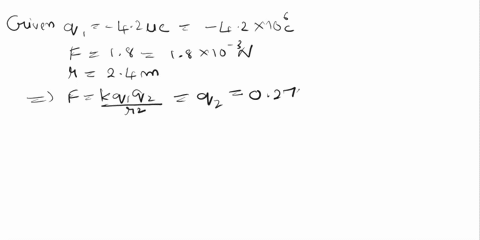 Given q₁ = -4.2uc = -4.2×10⁶c
F = 1.8 = 1.8×10⁻³N
r = 2.4m
=) F = kq₁q₂/r2 = q₂ = 0.27